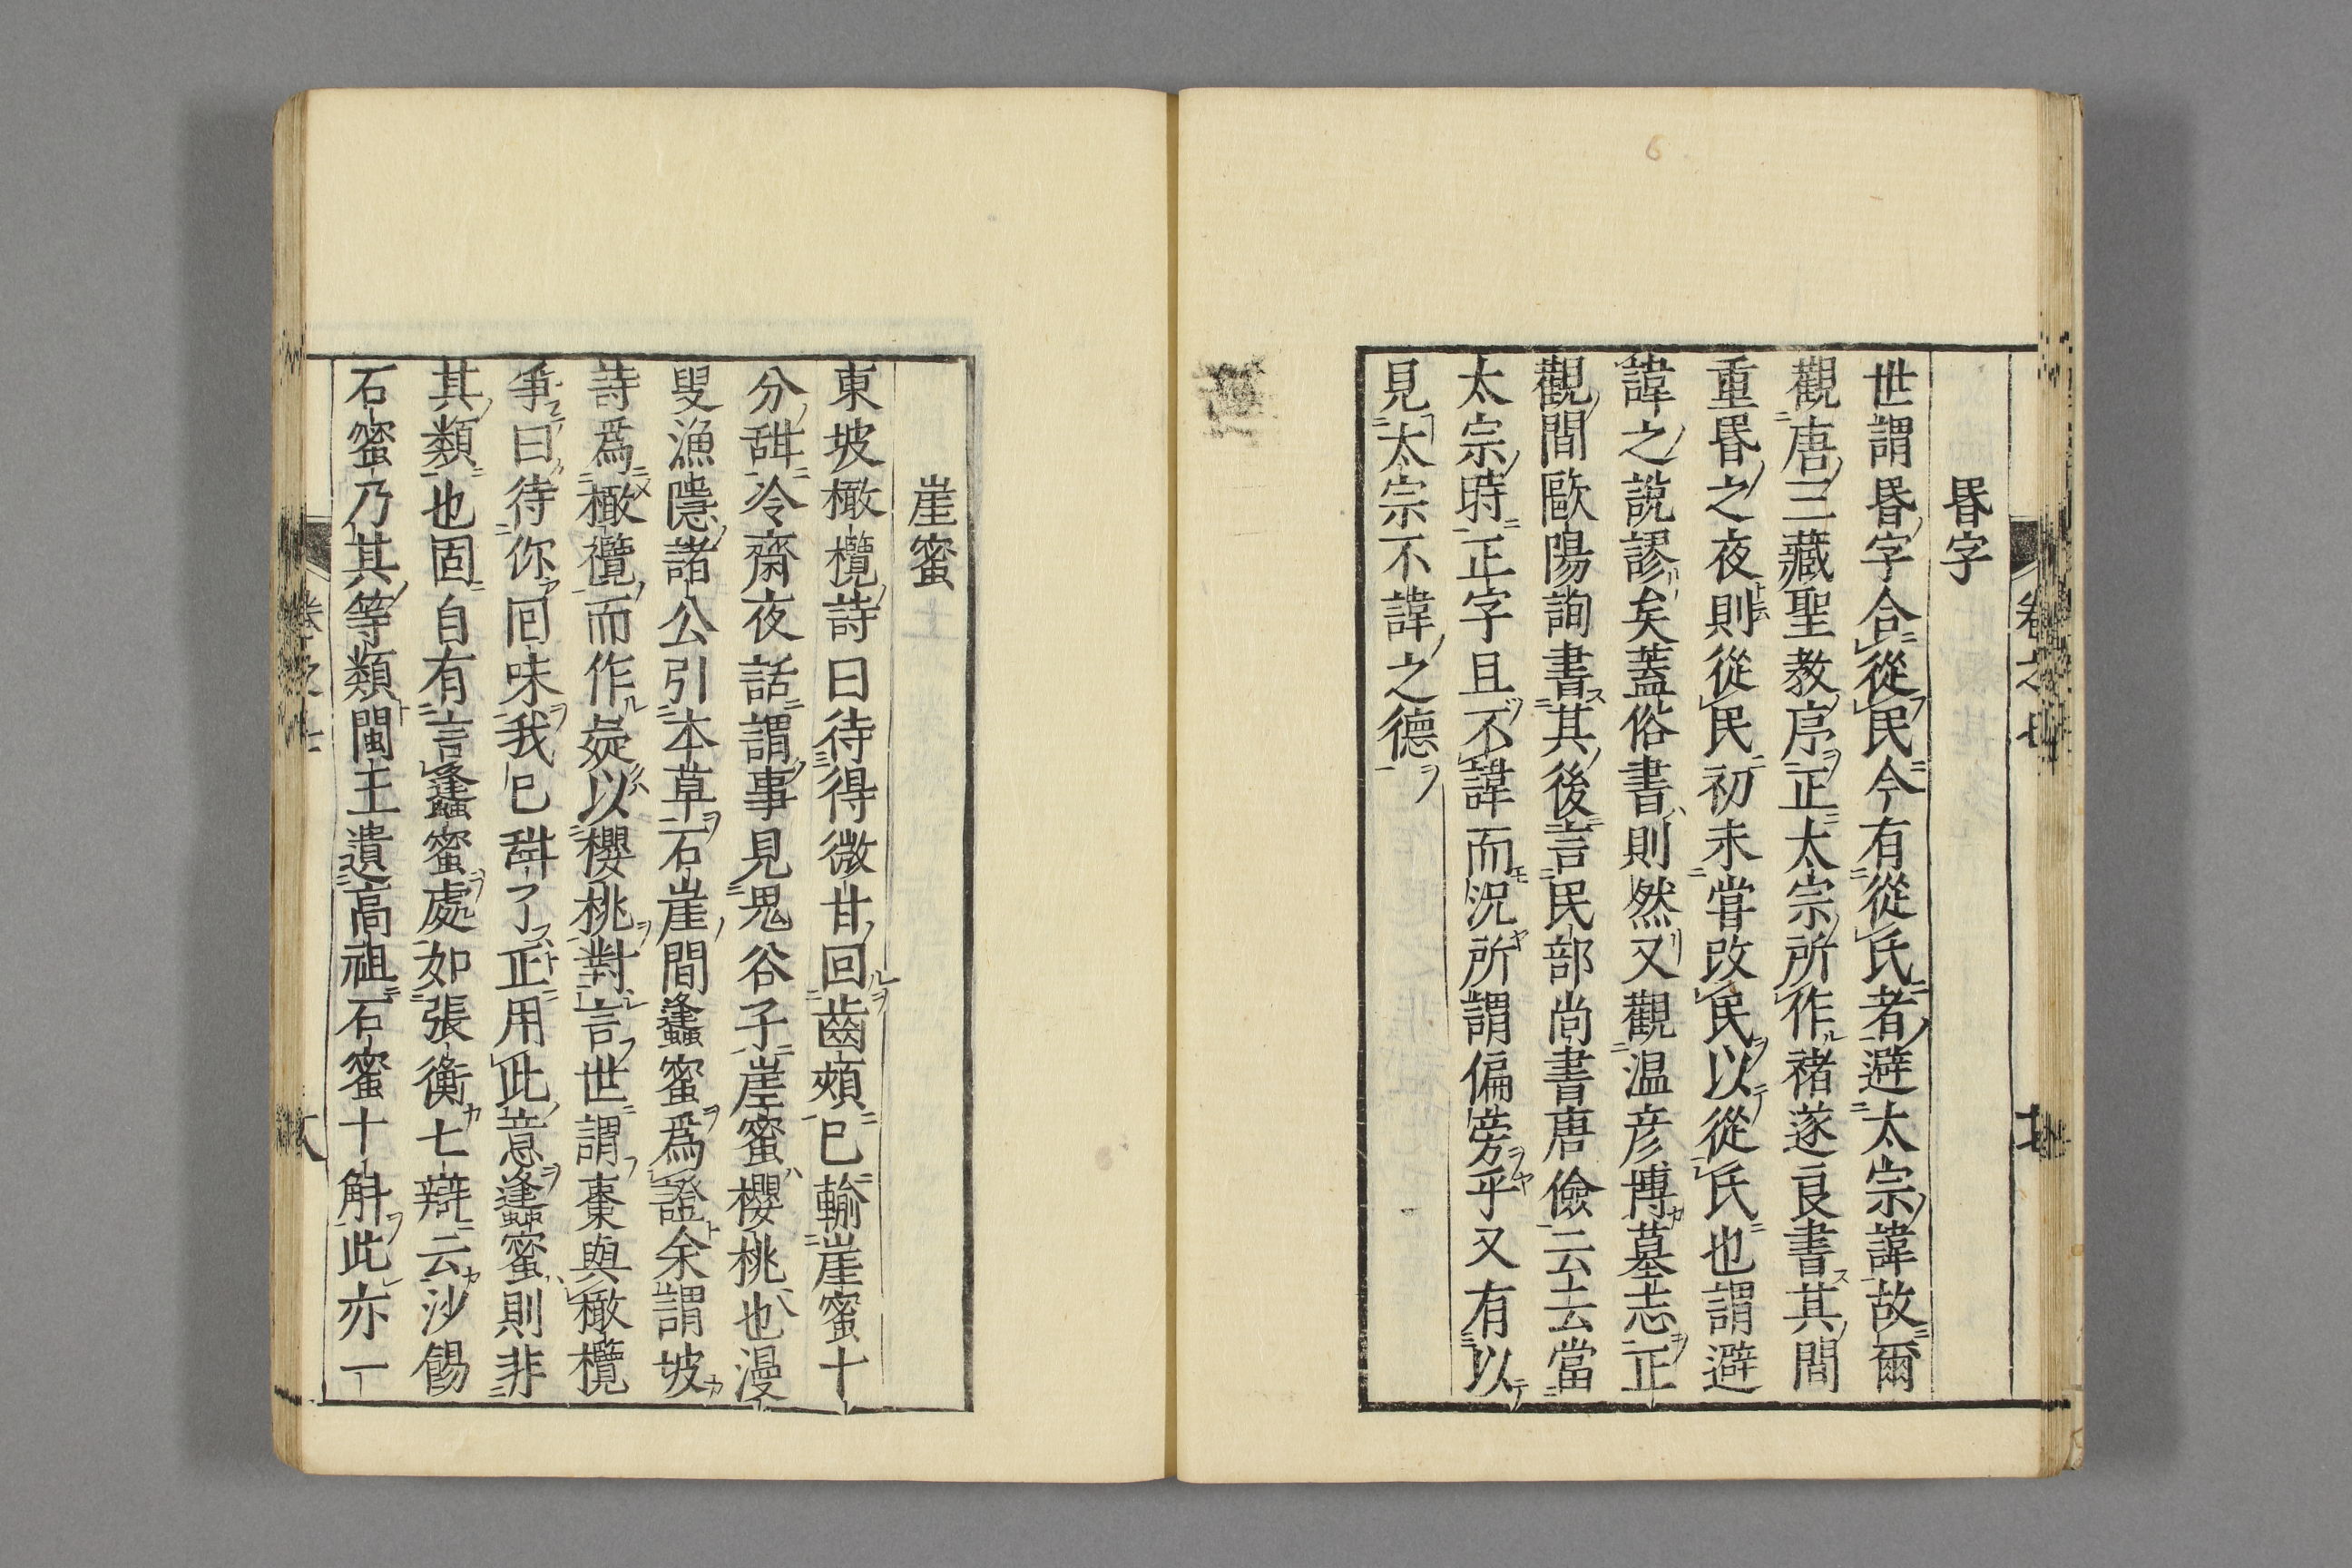 昬字
世謂昬字合從民今有從氏者避太宗諱故爾
觀唐三藏聖教序正太宗所作褚遂良書其間
重昬之夜則從民初未甞改民以從氏也謂避
諱之說謬矣蓋俗書則然又觀温彦博墓志正
觀間歐陽詢書其後言民部尚書唐儉云云當
太宗時正字且不諱而况所謂偏旁乎又有以
見太宗不諱之德
崖蜜
東坡橄欖詩曰待得微甘回齒頰已輸崖蜜十
分甜冷齋夜話謂事見鬼谷子崖蜜櫻桃也漫
叟漁隱諸公引本草石崖間蠭蜜爲證余謂坡
詩爲橄欖而作疑以櫻桃對言世謂棗與橄欖
爭曰待你回味我已甜了正用此意蠭蜜則非
其類也固自有言蠭蜜處如張衡七辯云沙餳
石蜜乃其等類閩王遺高祖石蜜十斛此亦一